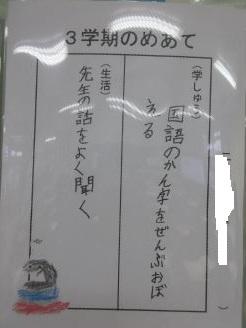 3学期のめあて
（学しゅう）
国語のかん字をぜんぶおぼ
える
（生活）
先生の話をよく聞く